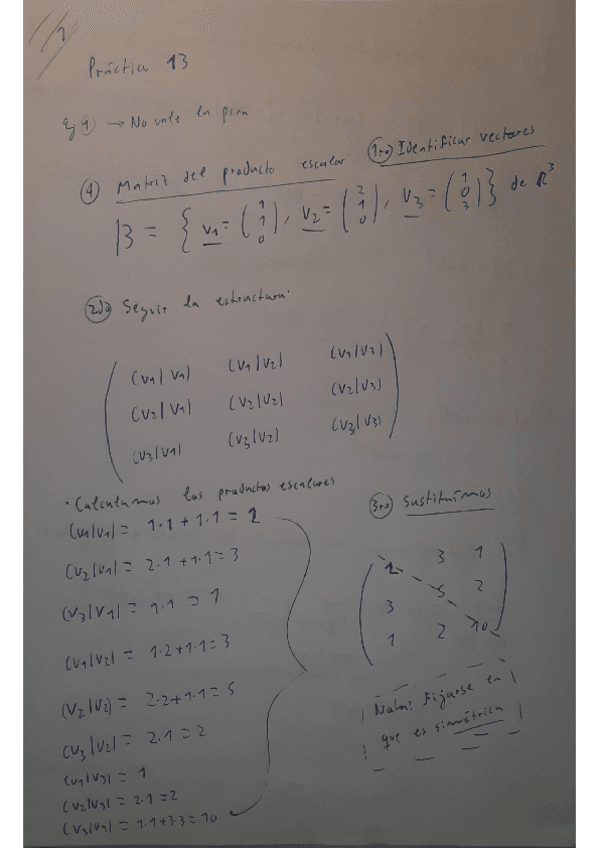 Práctica 13
Ej 1 → No vale la pena
④ Matriz del producto escalar 1ro) Identificar vectores
B = { v1 = (1 1 0), v2 = (2 1 0), v3 = (1 0 3) } de R^3
2do) Seguir la estructura:
(v1|v1) (v1|v2) (v1|v3)
(v2|v1) (v2|v2) (v2|v3)
(v3|v1) (v3|v2) (v3|v3)
· Calculamos los productos escalares
(v1|v1) = 1·1 + 1·1 = 2
(v2|v1) = 2·1 + 1·1 = 3
(v3|v1) = 1·1 = 1
(v1|v2) = 1·2 + 1·1 = 3
(v2|v2) = 2·2 + 1·1 = 5
(v3|v2) = 2·1 = 2
(v1|v3) = 1
(v2|v3) = 2·1 = 2
(v3|v3) = 1·1 + 3·3 = 10
3ro) Sustituimos
2 3 1
3 5 2
1 2 10
Nota: Fijarse en
que es simétrica